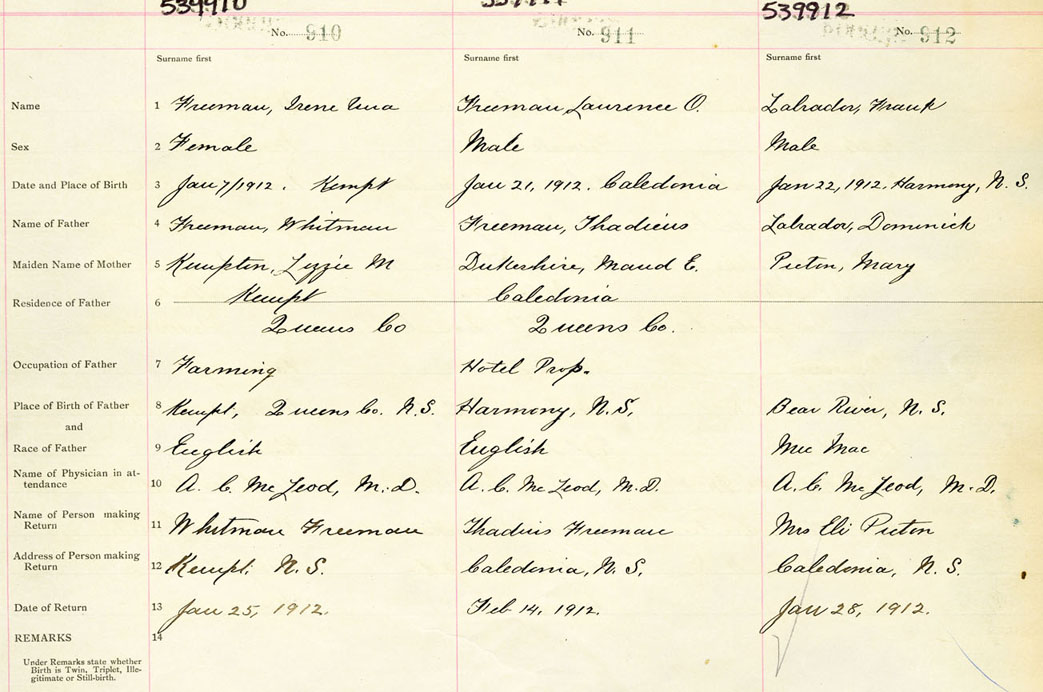 539912
No. 910 No. 911 No. 912
Surname first Surname first Surname first
Name 1 Freeman, Irene Una Freeman, Laurence O. Labrador, Frank
Sex 2 Female Male Male
Date and Place of Birth 3 Jan 7/1912. Kempt Jan 21, 1912. Caledonia Jan 22, 1912. Harmony, N.S.
Name of Father 4 Freeman, Whitman Freeman, Thadieus Labrador, Dominick
Maiden Name of Mother 5 Kempton, Lizzie M Dukeshire, Maud E. Picton, Mary
Residence of Father 6 Kempt Caledonia
Queens Co Queens Co.
Occupation of Father 7 Farming Hotel Prop.
Place of Birth of Father 8 Kempt, Queens Co. N.S. Harmony, N.S. Bear River, N.S.
and
Race of Father 9 English English Mic Mac
Name of Physician in at-
tendance 10 A. C. McLeod, M.D. A. C. McLeod, M.D. A. C. McLeod, M.D.
Name of Person making
Return 11 Whitman Freeman Thadius Freeman Mrs Eli Picton
Address of Person making
Return 12 Kempt. N.S. Caledonia, N.S. Caledonia, N.S.
Date of Return 13 Jan 25, 1912. Feb 14, 1912. Jan 28, 1912.
REMARKS 14
Under Remarks state whether
Birth is Twin, Triplet, Ille-
gitimate or Still-birth.